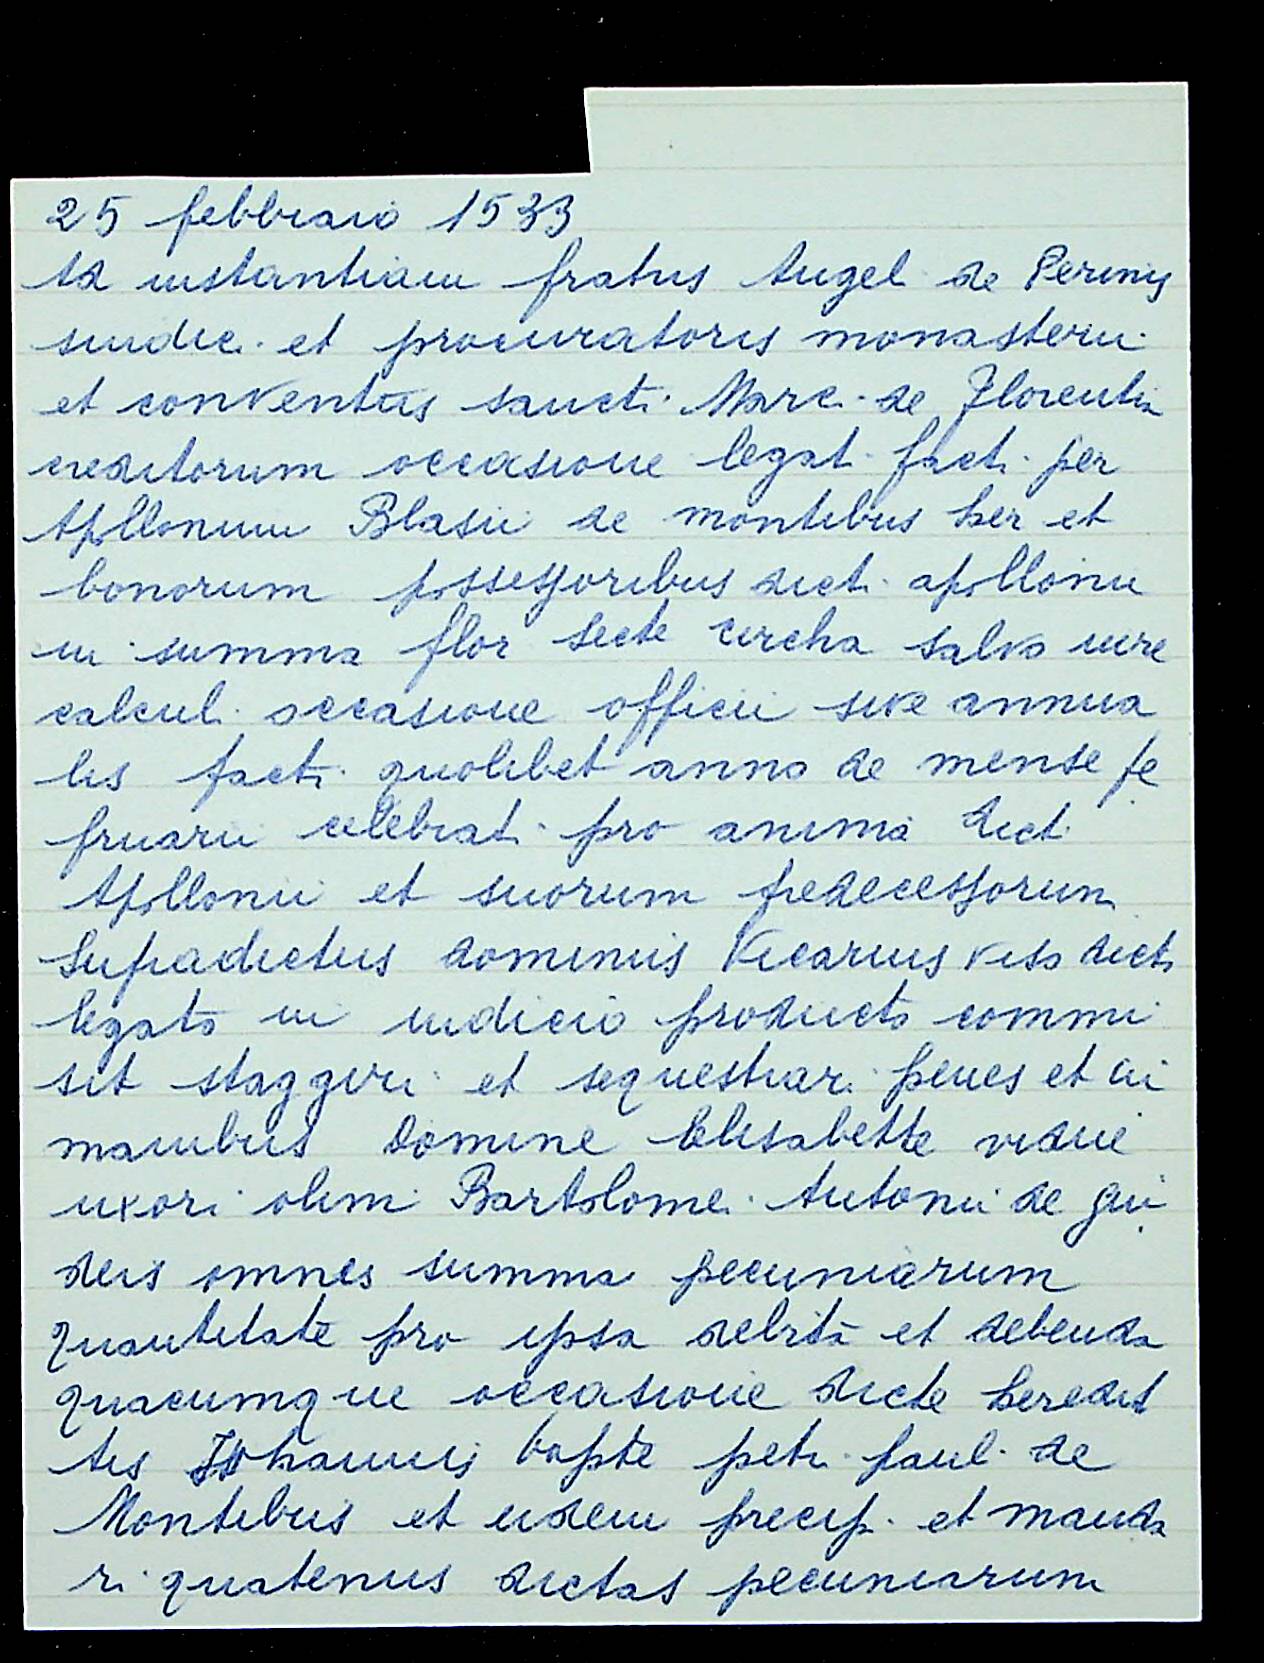 25 febbraio 1533
Ad instantiam fratris Angel. de Perinis
sindic. et procuratoris monasterii
et conventus sancti Marc. de Florentia
creditorum occasione legat. fact. per
Apollonium Blasii de montibus her et
bonorum possessoribus dict. apollonii
in summa flor secte circha salvo iure
calcul. occasione officii sive annua
lis fact. quolibet anno de mense fe
fruarii celebrat. pro anima dict
Apollonii et suorum predecessorum
Supradictus dominus Vicarius viso dicto
legato in iudicio producto commi
sit staggiri et sequestrar. penes et in
manibus Domine Elisabette vidue
uxori olim Bartolome. Antonii de gui
deis omnes summa pecuniarum
quantitate pro ipsa debita et debenda
quacumque occasione dicte heredit
tis Johannis bapte petri paul. de
Montibus et eidem precip. et manda
ri quatenus dictas pecuniarum